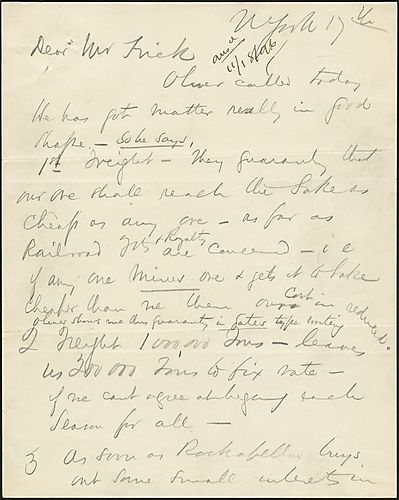 N York 17th
Dear Mr Frick
ansd
11/18/96
Oliver called today
He has got matter really in good
shape. — So he says,
1st Freight — They guaranty that
our ore shall reach the Lake as
cheap as any ore — as far as
Railroad frts & Royalty are concerned — i e
if any one Mines ore & gets it to Lake
cheaper than we then our Cost is reduced.
Oliver shows me this guaranty in Gates type writing
2 Freight 1 000 000 Tons — leaves
us 300 000 Tons to fix rate —
if we cant agree at beging each
Season for all. —
3 As soon as Rockafeller buys
out some small interests in